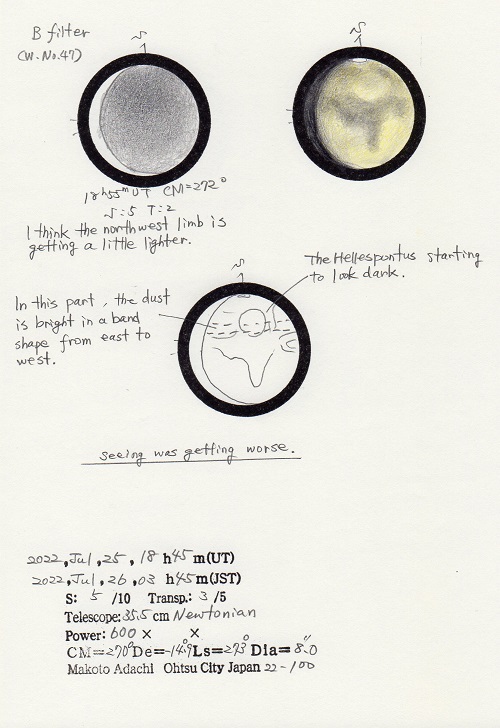 B filter
(W.No.47)
S
S
18h55m UT CM=272°
S:5 T:2
I think the northwest limb is
getting a little lighter.
The Hellespontus starting
to look dark.
S
In this part, the dust
is bright in a band
shape from east to
west.
seeing was getting worse.
2022, Jul, 25, 18 h45 m(UT)
2022, Jul, 26, 03 h45m(JST)
S: 5 /10 Transp.: 3 /5
Telescope: 35.5 cm Newtonian
Power: 600 × ×
CM=270° De=-14.9° Ls=273° Dia= 8.0"
Makoto Adachi Ohtsu City Japan 22-100